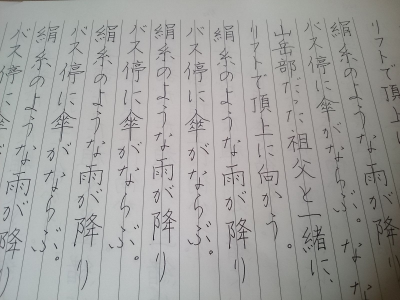 リフトで頂上に
絹糸のような雨が降り
バス停に傘がならぶ。なな
山岳部だった祖父と一緒に、
リフトで頂上に向かう。
絹糸のような雨が降り
バス停に傘がならぶ。
絹糸のような雨が降り
バス停に傘がならぶ。
絹糸のような雨が降り
バス停に傘がならぶ。
絹糸のような雨が降り
バス停に傘が